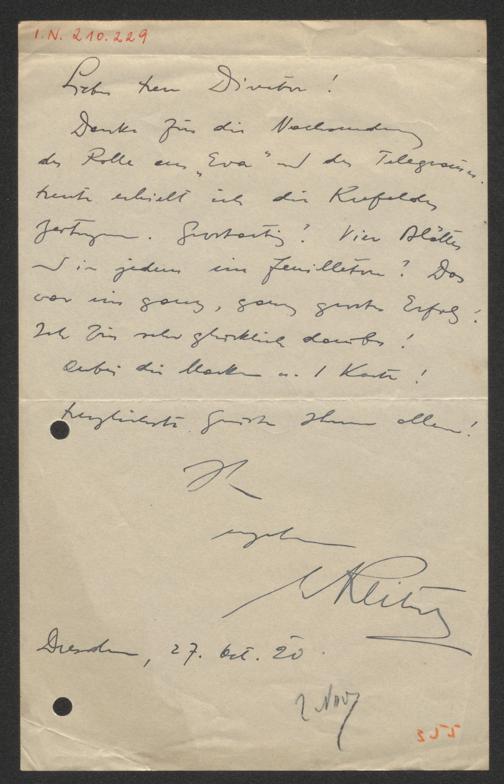 I.N. 210.229
Lieber Herr Direktor!
Danke für die Nachsendung
der Rolle aus „Eva“ und des Telegramms.
Heute erhielt ich die Krefelder
Zeitungen. Grossartig! Vier Blätter
und in jedem ein Feuilleton! Das
war ein ganz, ganz großer Erfolg!
Ich bin sehr glücklich darüber!
Anbei die Marken u. 1 Karte!
Herzlichste Grüße Ihnen allen!
Ihr
ergebener
Dresden, 27. Okt. 20.
2 Nov
355